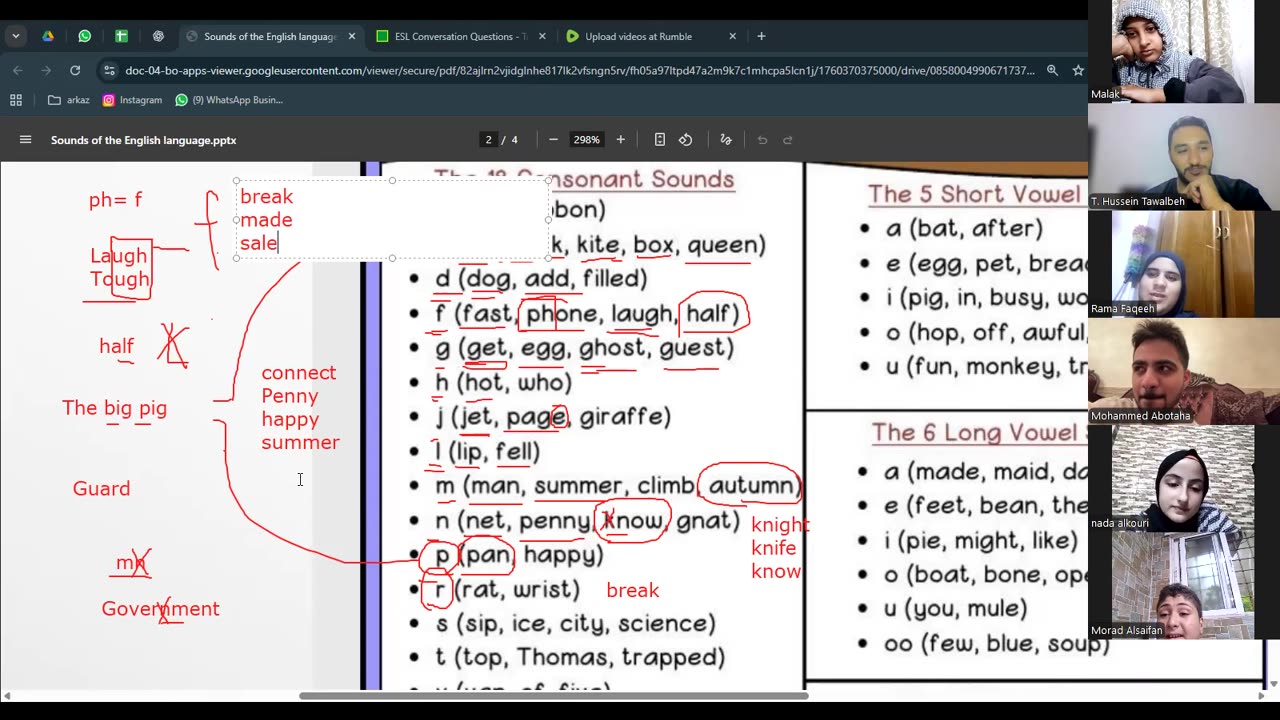 Sounds of the English language
ESL Conversation Questions - T
Upload videos at Rumble
doc-04-bo-apps-viewer.googleusercontent.com/viewer/secure/pdf/82ajlrn2vjidglnhe817lk2vfsngn5rv/fh05a97ltpd47a2m9k7c1mhcpa5lcn1j/1760370375000/drive/0858004990671737...
arkaz
Instagram
(9) WhatsApp Busin...
Sounds of the English language.pptx
2 / 4
298%
ph= f
Laugh
Tough
half
The big pig
Guard
mn
Government
break
made
sale
connect
Penny
happy
summer
Consonant Sounds
k, kite, box, queen)
d (dog, add, filled)
f (fast, phone, laugh, half)
g (get, egg, ghost, guest)
h (hot, who)
j (jet, page, giraffe)
l (lip, fell)
m (man, summer, climb, autumn)
n (net, penny, know, gnat)
p (pan, happy)
r (rat, wrist)
s (sip, ice, city, science)
t (top, Thomas, trapped)
knight
knife
know
break
The 5 Short Vowel
a (bat, after)
e (egg, pet, brea
i (pig, in, busy, wo
o (hop, off, awful,
u (fun, monkey, tr
The 6 Long Vowel
a (made, maid, da
e (feet, bean, the
i (pie, might, like)
o (boat, bone, ope
u (you, mule)
oo (few, blue, soup)
Malak
T. Hussein Tawalbeh
Rama Faqeeh
Mohammed Abotaha
nada alkouri
Morad Alsaifan